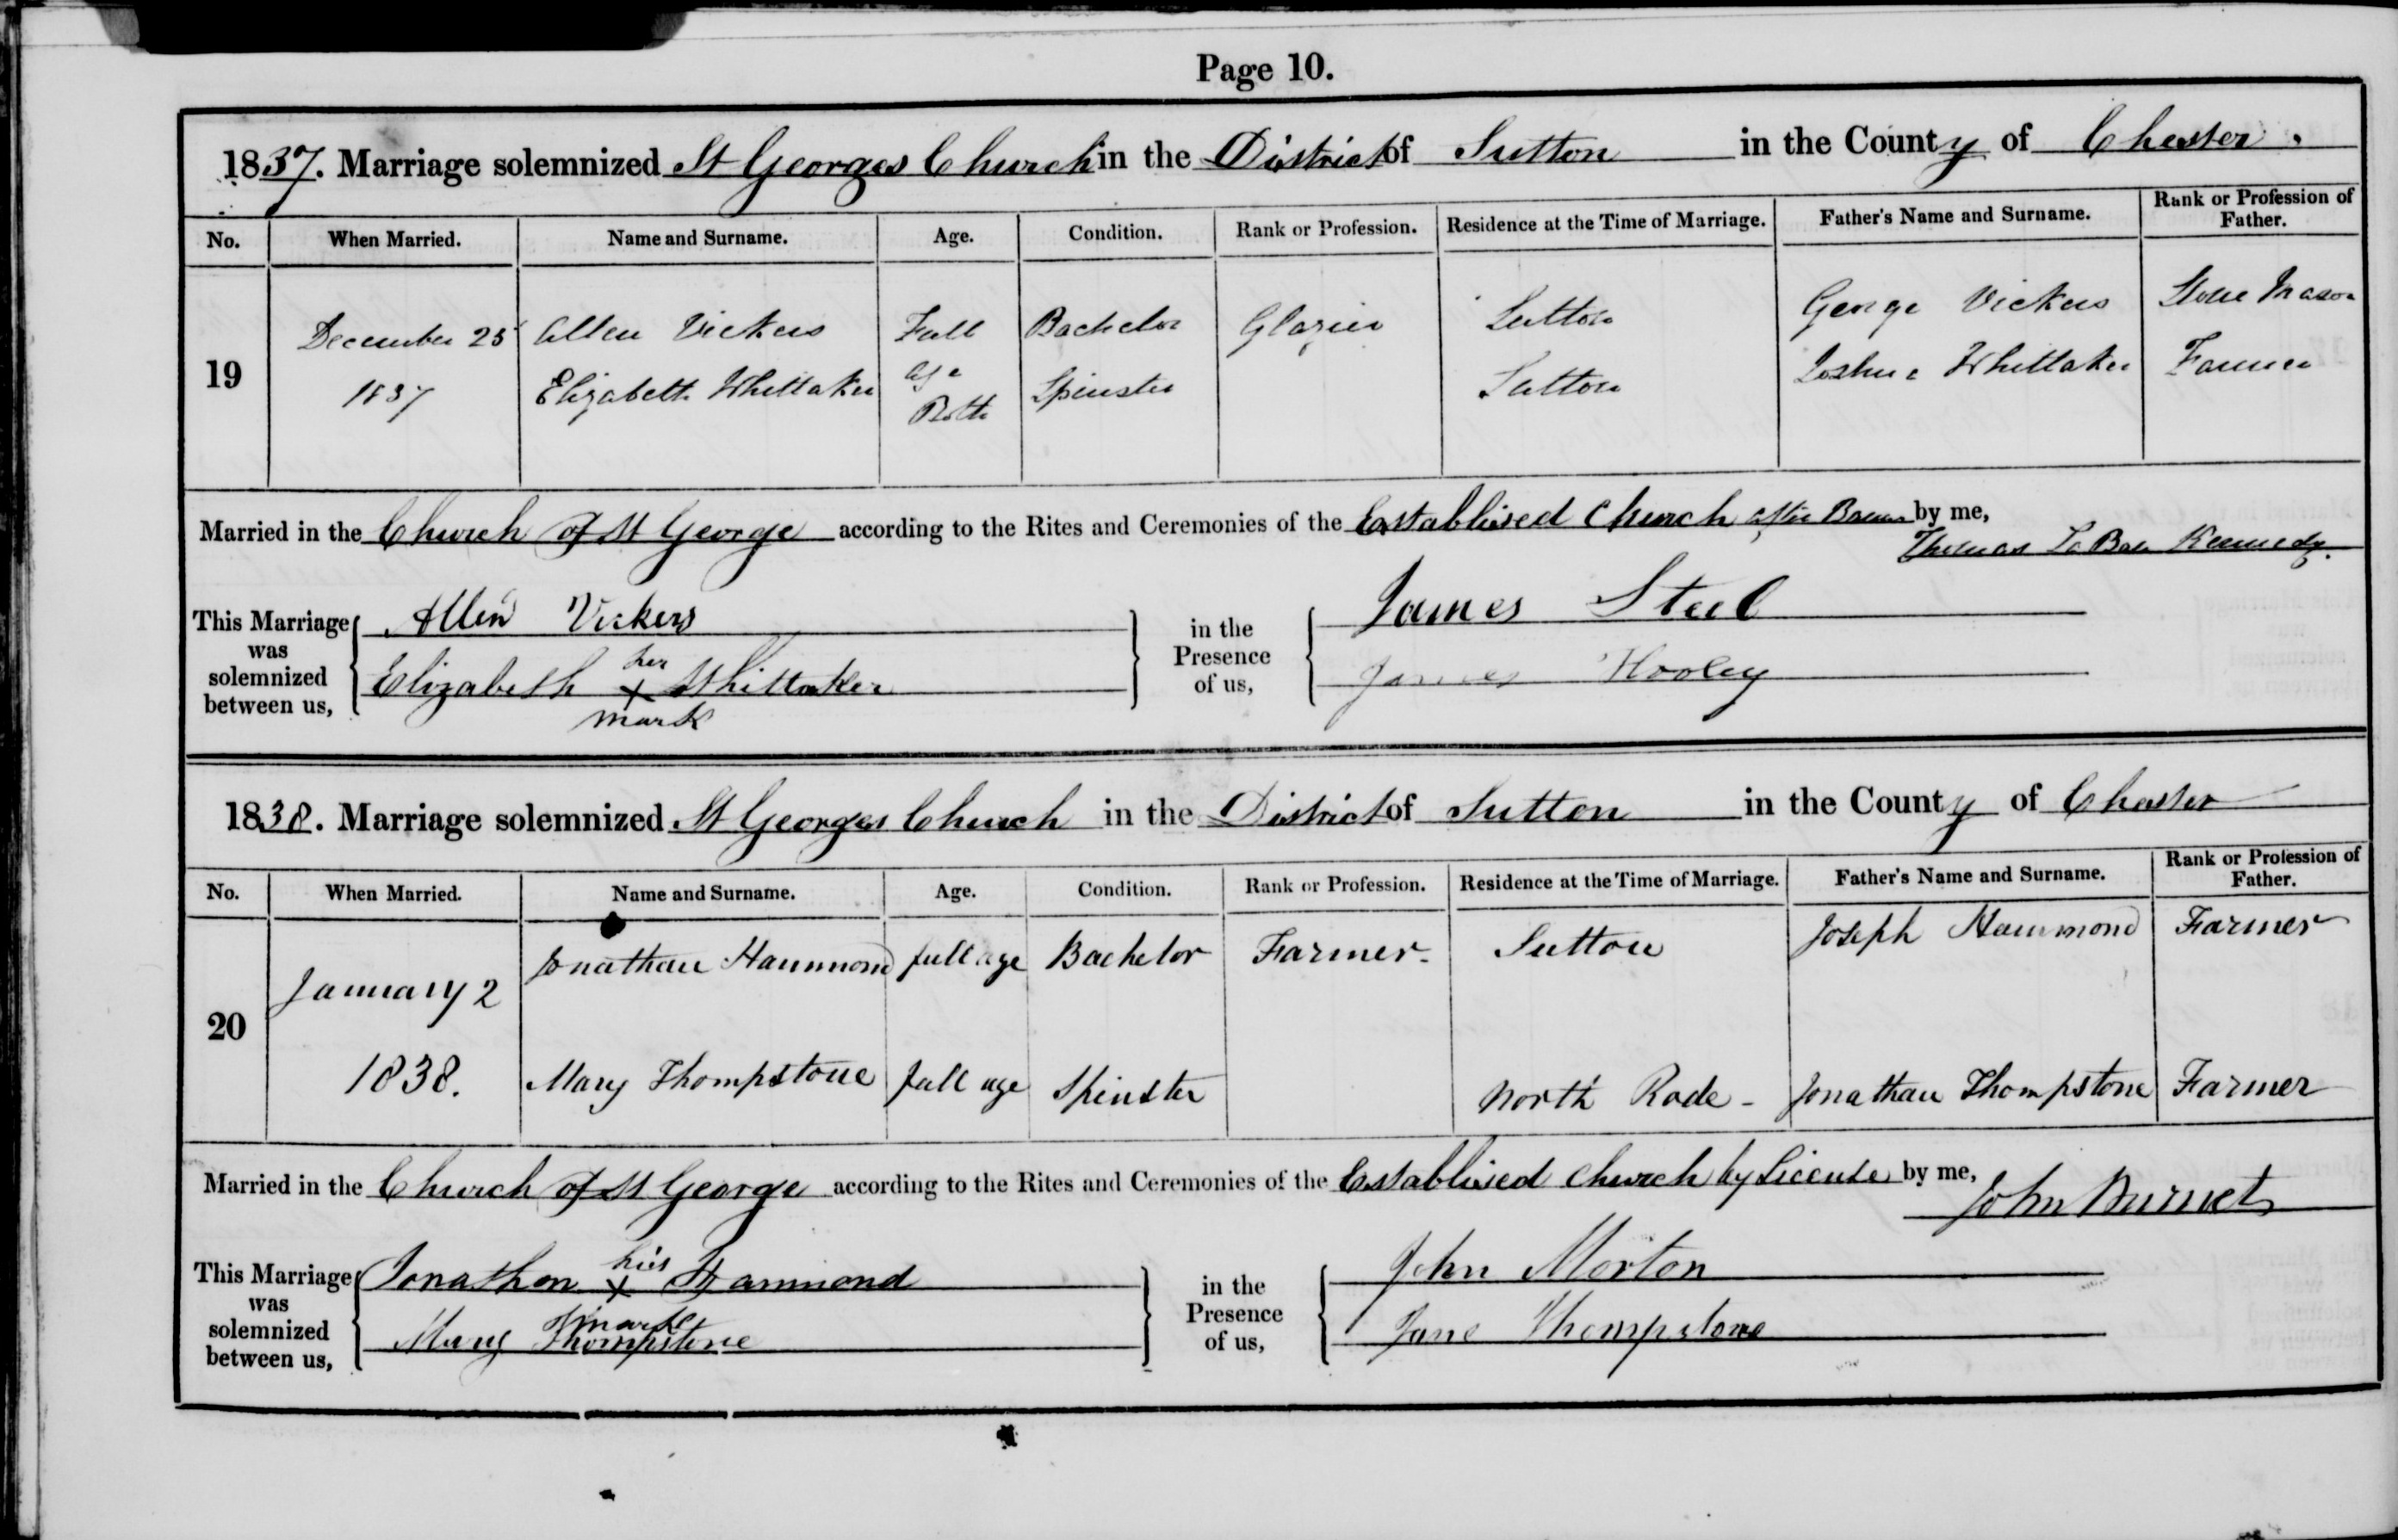 Page 10.
1837. Marriage solemnized St Georges Church in the District of Sutton in the County of Chester.
No. When Married. Name and Surname. Age. Condition. Rank or Profession. Residence at the Time of Marriage. Father's Name and Surname. Rank or Profession of Father.
December 25 Allen Vickers Full Bachelor Glazier Sutton George Vickers Stone Mason
19 1837 Elizabeth Whittaker age Spinster Sutton Joshua Whittaker Farmer
Both
Married in the Church of St George according to the Rites and Ceremonies of the Established Church after Banns by me,
Thomas Kennedy.
This Marriage was solemnized between us, Allen Vickers in the Presence of us, James Steel
Elizabeth her x Whittaker James Hooley
mark
1838. Marriage solemnized St Georges Church in the District of Sutton in the County of Chester
No. When Married. Name and Surname. Age. Condition. Rank or Profession. Residence at the Time of Marriage. Father's Name and Surname. Rank or Profession of Father.
January 2 Jonathan Hammond full age Bachelor Farmer Sutton Joseph Hammond Farmer
20
1838. Mary Thompstone full age Spinster North Rode - Jonathan Thompstone Farmer
Married in the Church of St George according to the Rites and Ceremonies of the Established Church by License by me,
John Burnet
This Marriage was solemnized between us, Jonathon his x Hammond in the Presence of us, John Morton
mark
Mary Thompstone Jane Thompstone